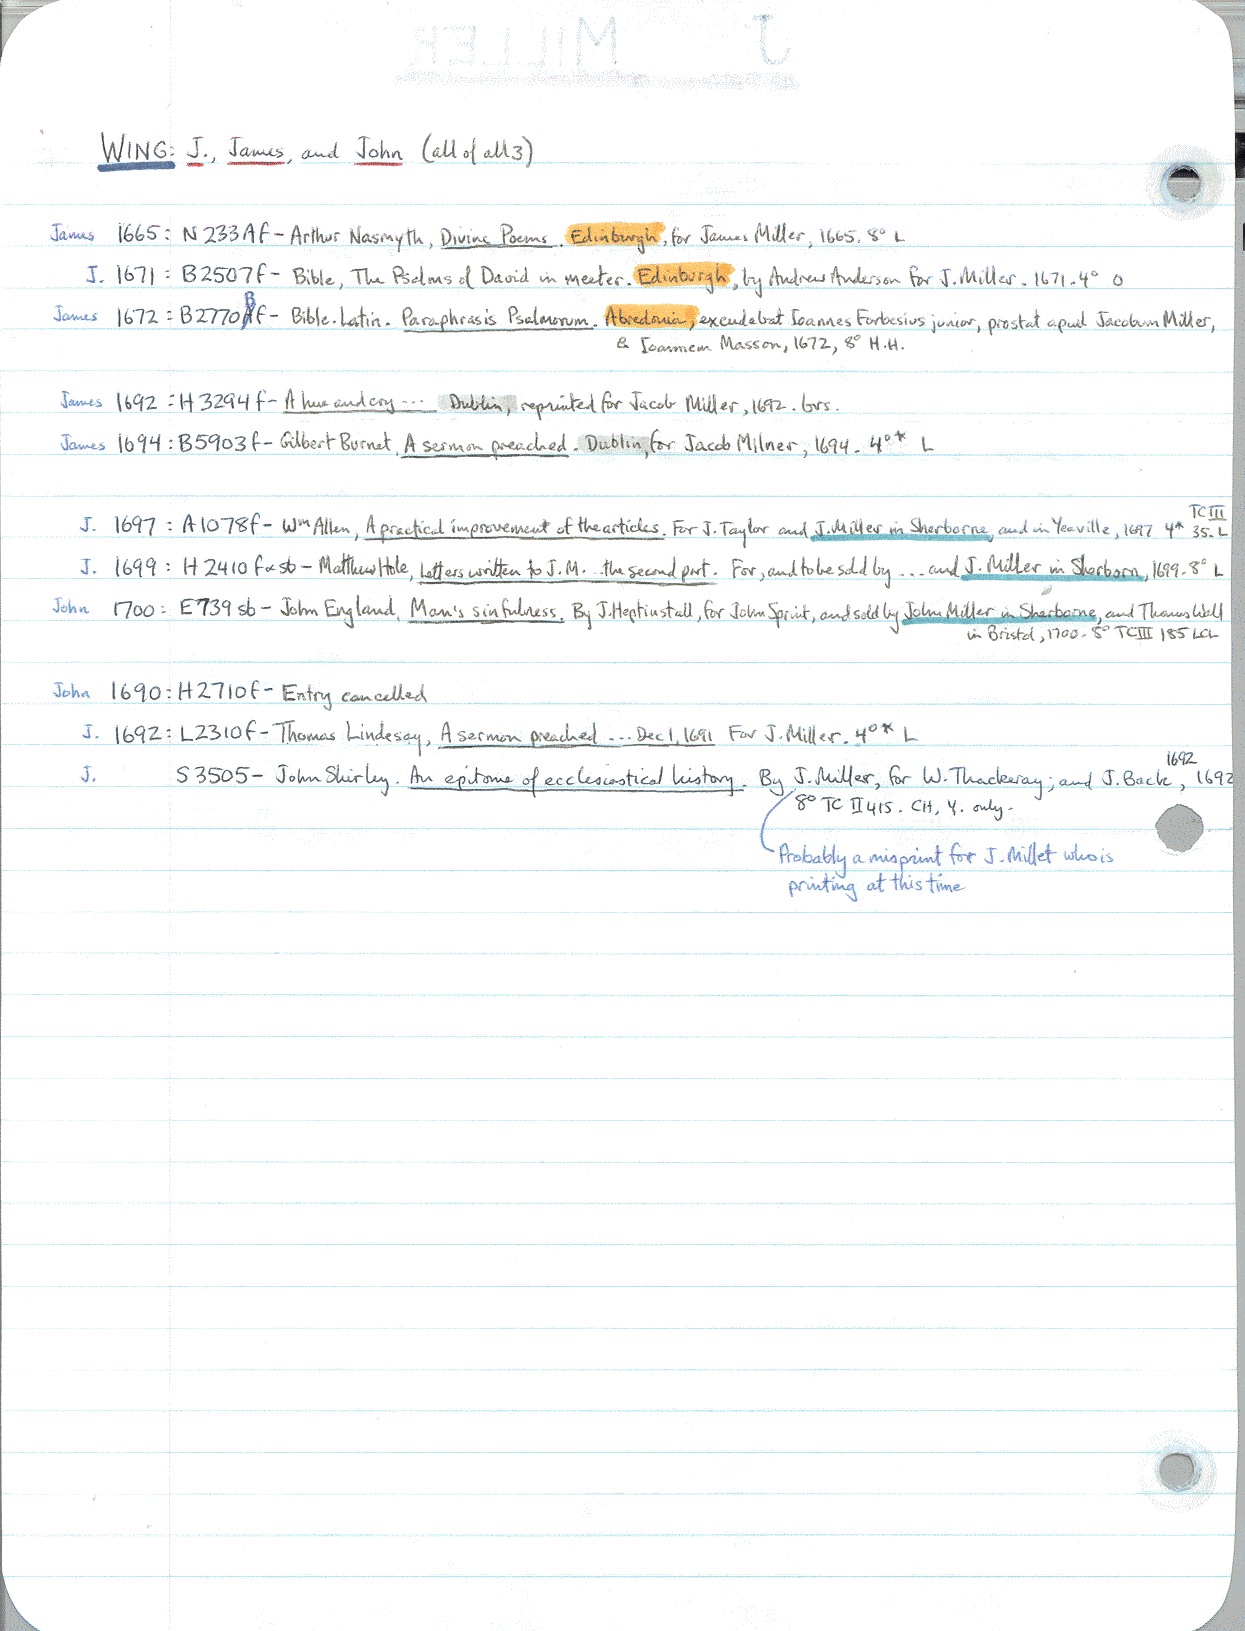 J MILLER
WING: J., James, and John (all of all 3)
James 1665: N233Af - Arthur Nasmyth, Divine Poems. Edinburgh, for James Miller, 1665. 8° L
J. 1671: B2507f - Bible, The Psalms of David in meeter. Edinburgh, by Andrew Anderson for J. Miller. 1671. 4° O
James 1672: B2770Bf - Bible. Latin. Paraphrasis Psalmorum. Abredonia, excudebat Ioannes Forbesius junior, prostat apud Jacobum Miller,
& Ioannem Masson, 1672, 8° H.H.
James 1692: H3294f - A hue and cry ... Dublin, reprinted for Jacob Miller, 1692. brs.
James 1694: B5903f - Gilbert Burnet, A sermon preached. Dublin, for Jacob Milner, 1694. 4°* L
TC III
J. 1697: A1078f - Wm Allen, A practical improvement of the articles. For J. Taylor and J. Miller in Sherborne, and in Yeaville, 1697 4* 35. L
J. 1699: H2410 f sb - Matthew Hole, Letters written to J.M. the second part. For, and to be sold by ... and J. Miller in Sherborn, 1699. 8° L
John 1700: E739 sb - John England, Man's sinfulness. By J. Heptinstall, for John Sprint, and sold by John Miller in Sherborne, and Thomas Wall
in Bristol, 1700. 8° TC III 185 LCL
John 1690: H2710f - Entry cancelled
J. 1692: L2310f - Thomas Lindesay, A sermon preached ... Dec 1, 1691 For J. Miller. 4°* L
1692
J. S3505 - John Shirley. An epitome of ecclesiastical history. By J. Miller, for W. Thackeray; and J. Back, 1692
8° TC II 415. CH, Y. only.
Probably a misprint for J. Millet who is
printing at this time